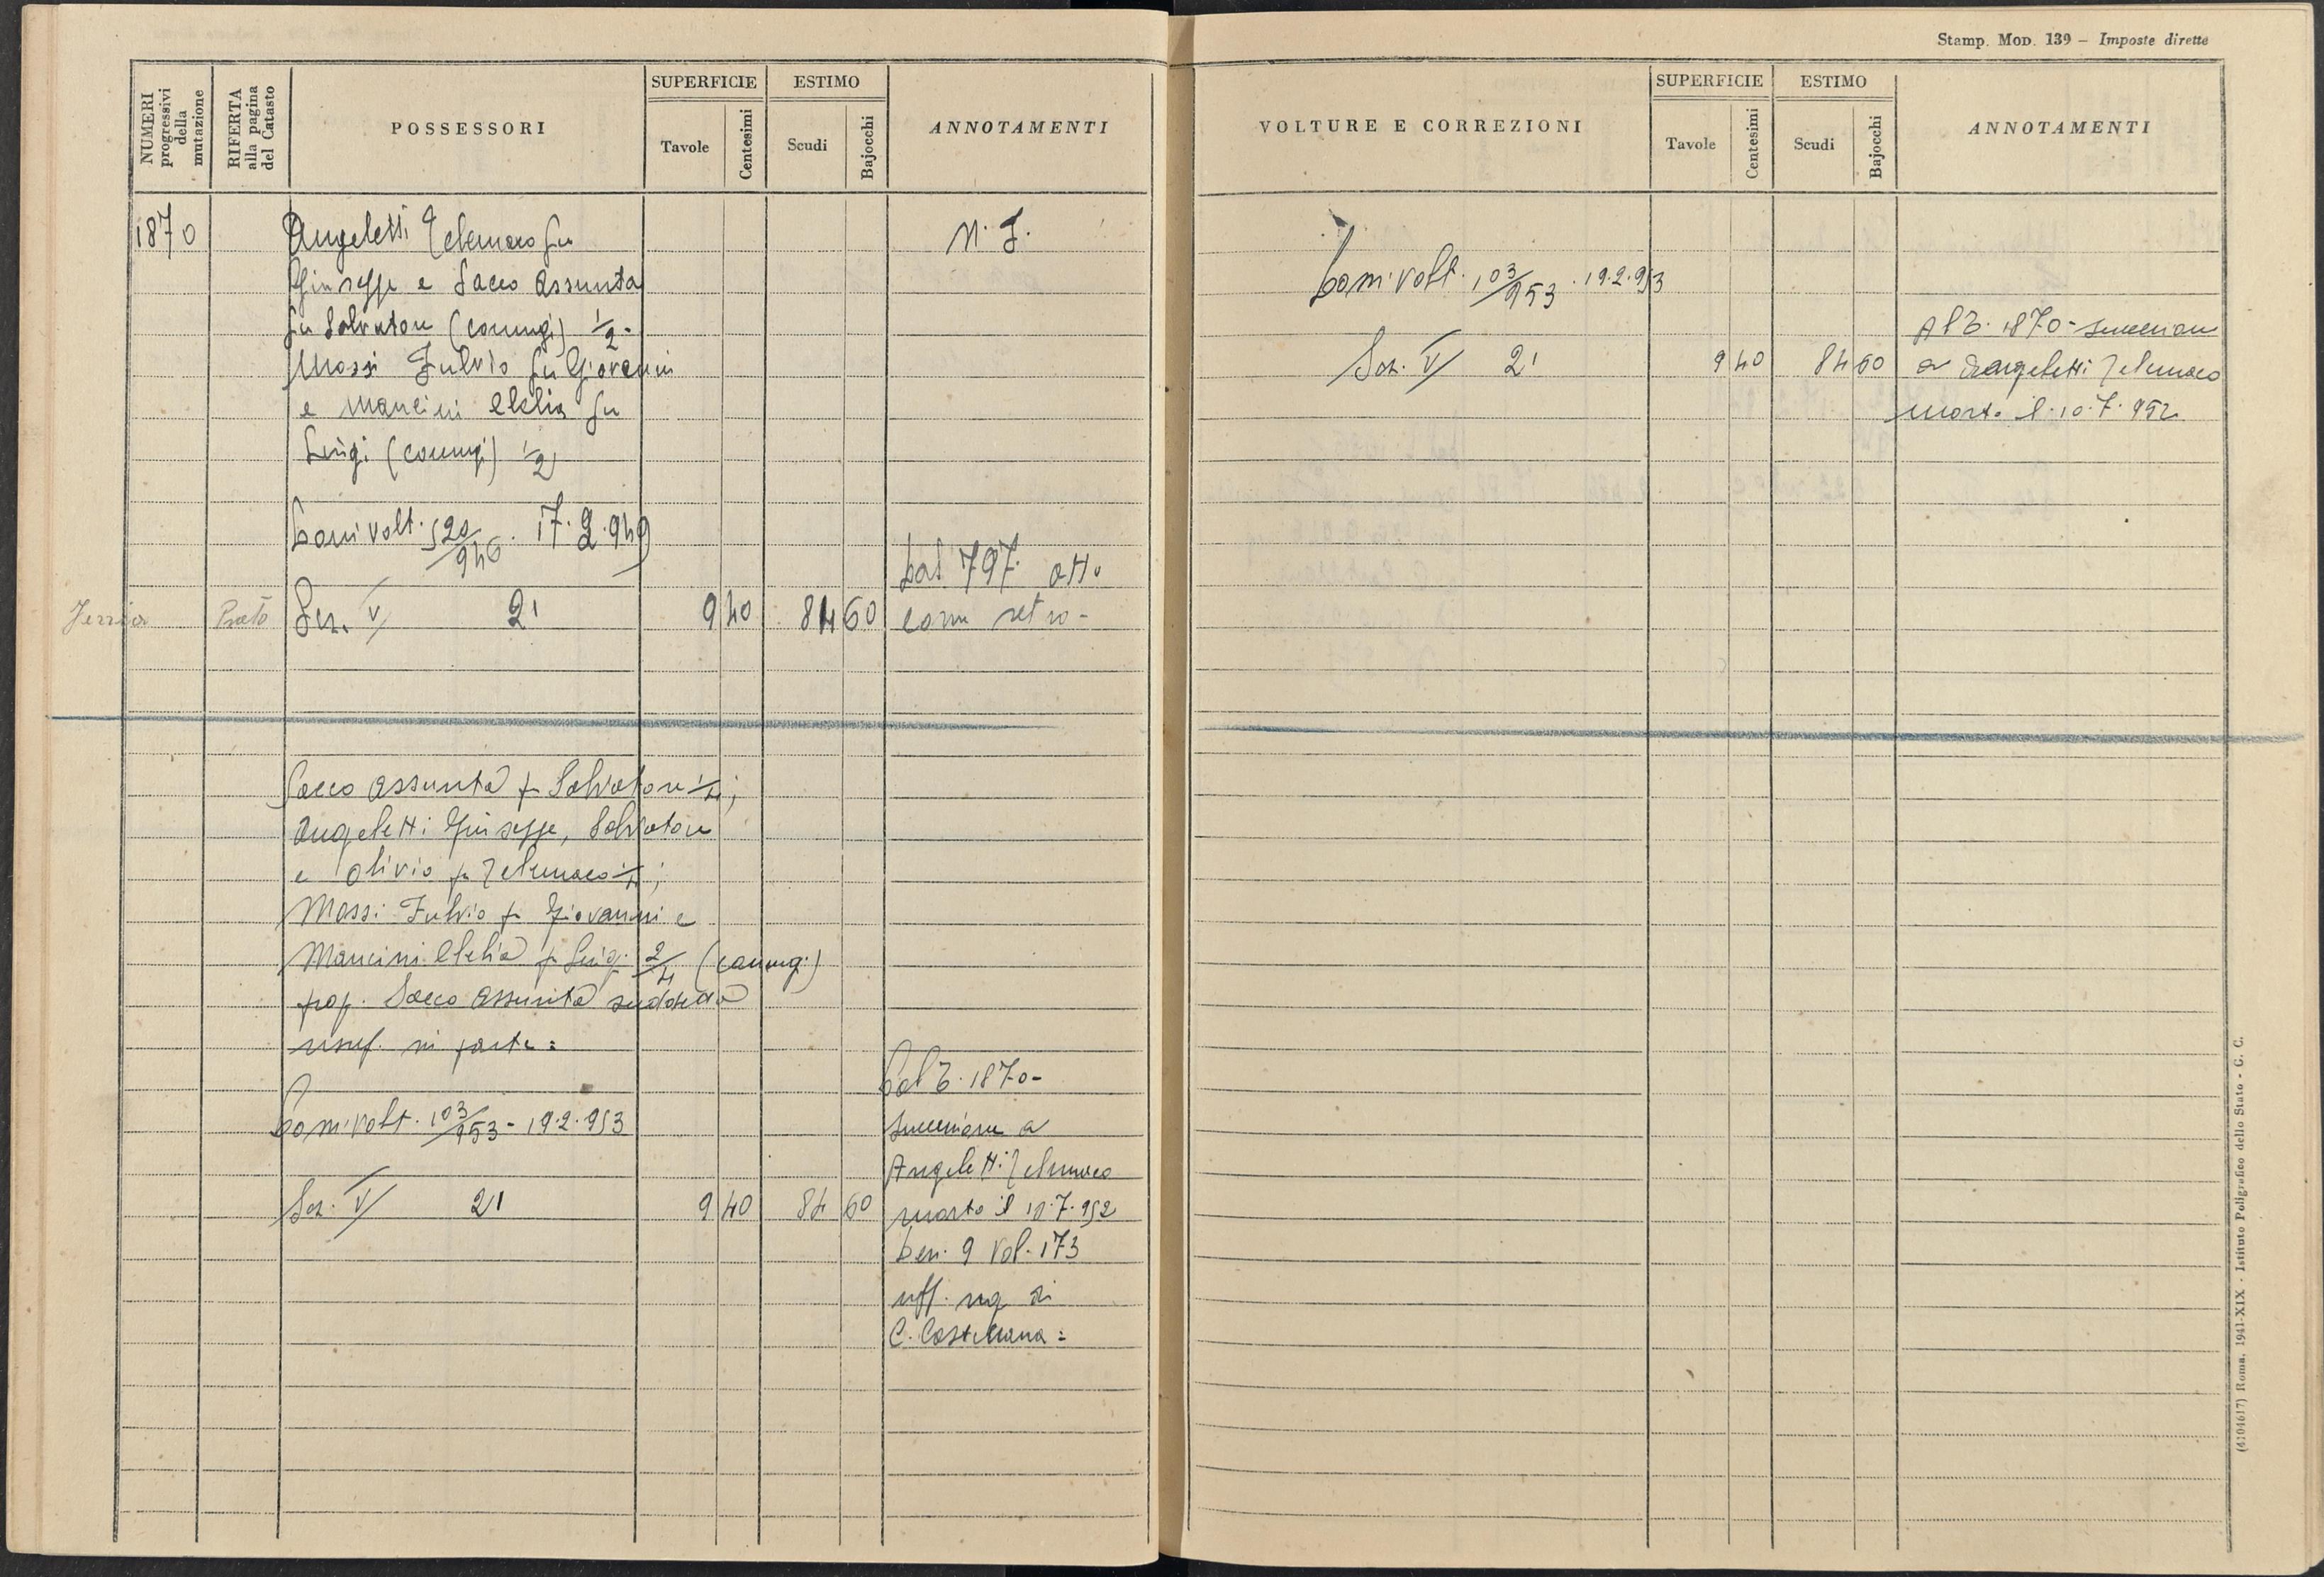 NUMERI progressivi della mutazione
RIFERTA alla pagina del Catasto
POSSESSORI
SUPERFICIE
Tavole
Centesimi
ESTIMO
Scudi
Bajocchi
ANNOTAMENTI
1870
Angeletti Telemaco fu
N. J.
Giuseppe e Sacco Assunta
fu Salvatore (coniugi) 1/2 -
Massi Fulvio fu Giovanni
e Mancini Clelia fu
Luigi (coniugi) 1/2
Dom. Volt. 520/946. 17.2.949
Dal 797. atto
Prato Sez. V/ 21 9 40 84 60 come retro -
Sacco Assunta fu Salvatore 1/4;
Angeletti Giuseppe, Salvatore
e Olivio fu Telemaco 1/4;
Massi Fulvio fu Giovanni e
Mancini Clelia fu Luigi 2/4 (coniugi)
prop. Sacco Assunta suddetta
usuf. in parte =
Dal T. 1870 -
Dom. Volt. 103/953 - 19.2.953
Successione a
Angeletti Telemaco
Sez. V/ 21 9 40 84 60 morto il 10.7.952
Den. 9 Vol. 173
uff. reg di
C. Castellana =
Stamp. Mod. 139 – Imposte dirette
VOLTURE E CORREZIONI
SUPERFICIE
Tavole
Centesimi
ESTIMO
Scudi
Bajocchi
ANNOTAMENTI
Dom. Volt. 103/953 . 19.2.953
Al T. 1870 - Successione
Sez. V/ 21 9 40 84 60 a Angeletti Telemaco
morto il 10.7.952
(4104617) Roma, 1941-XIX - Istituto Poligrafico dello Stato - G. C.